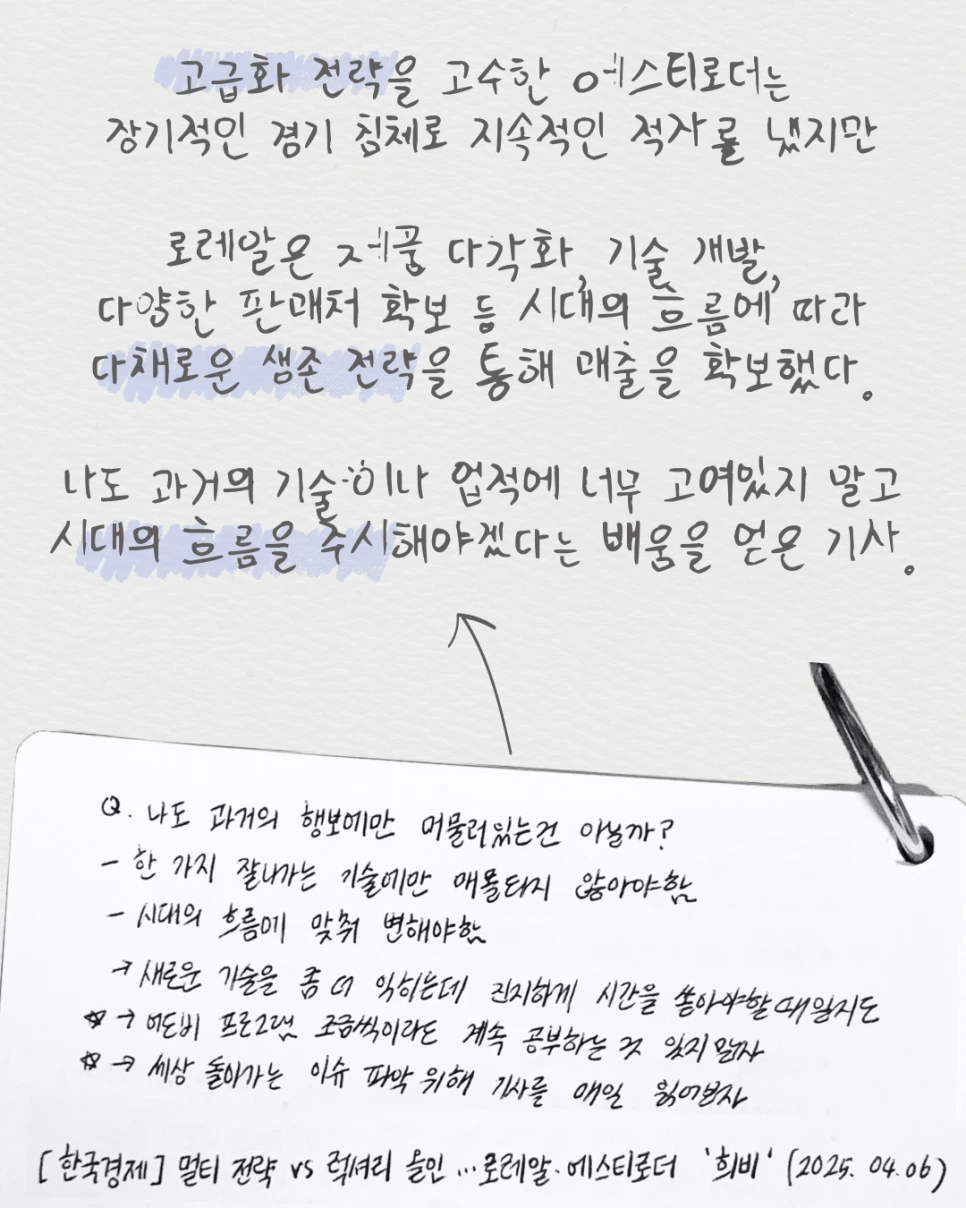 고급화 전략을 고수한 에스티로더는
장기적인 경기 침체로 지속적인 적자를 냈지만
로레알은 제품 다각화, 기술 개발,
다양한 판매처 확보 등 시대의 흐름에 따라
다채로운 생존 전략을 통해 매출을 확보했다.
나도 과거의 기술이나 업적에 너무 고여있지 말고
시대의 흐름을 주시해야겠다는 배움을 얻은 기사.
Q. 나도 과거의 행보에만 머물러있는건 아닐까?
- 한 가지 잘나가는 기술에만 매몰되지 않아야함
- 시대의 흐름에 맞춰 변해야함
→ 새로운 기술을 좀 더 익히는데 진지하게 시간을 쏟아야할 때일지도
☆ → 어도비 프로그램 조금씩이라도 계속 공부하는 것 잊지말자
☆ → 세상 돌아가는 이슈 파악 위해 기사를 매일 읽어보자
[한국경제] 멀티 전략 vs 럭셔리 올인…로레알·에스티로더 '희비' (2025. 04. 06)